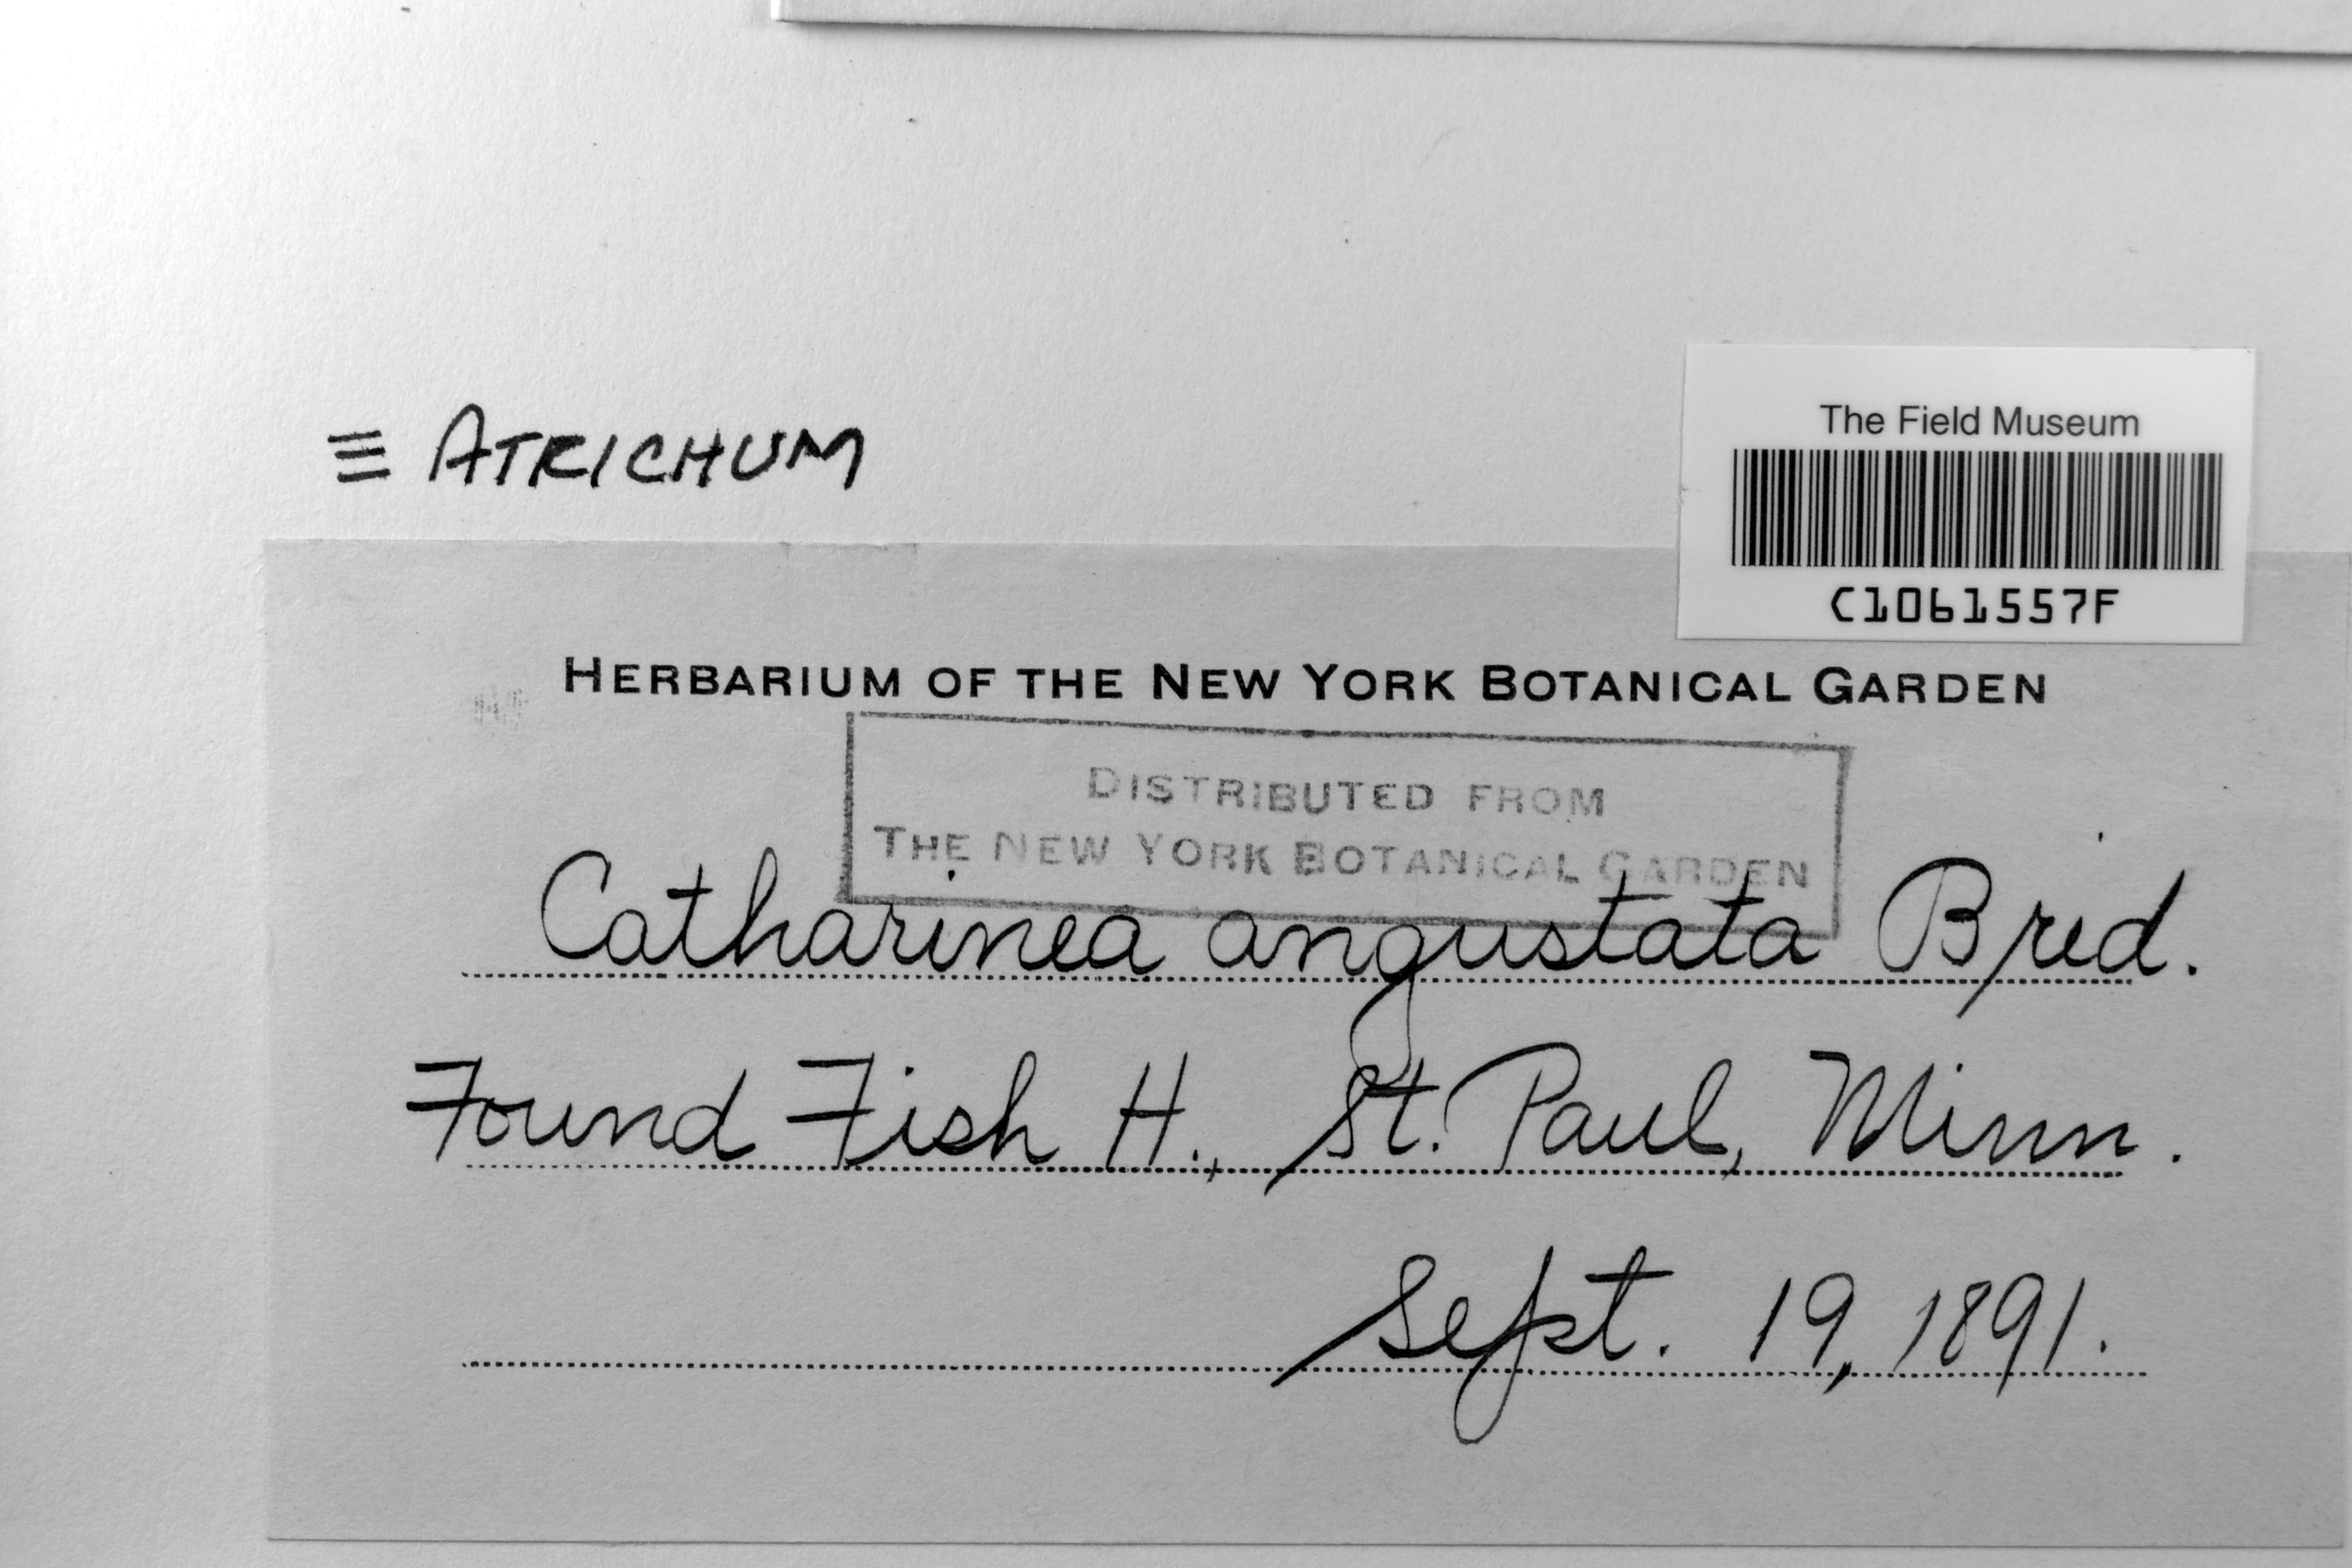 The Field Museum
≡ ATRICHUM
C1061557F
HERBARIUM OF THE NEW YORK BOTANICAL GARDEN
DISTRIBUTED FROM
THE NEW YORK BOTANICAL GARDEN
Catharinea angustata Brid.
Found Fish H., St. Paul, Minn.
Sept. 19, 1891.